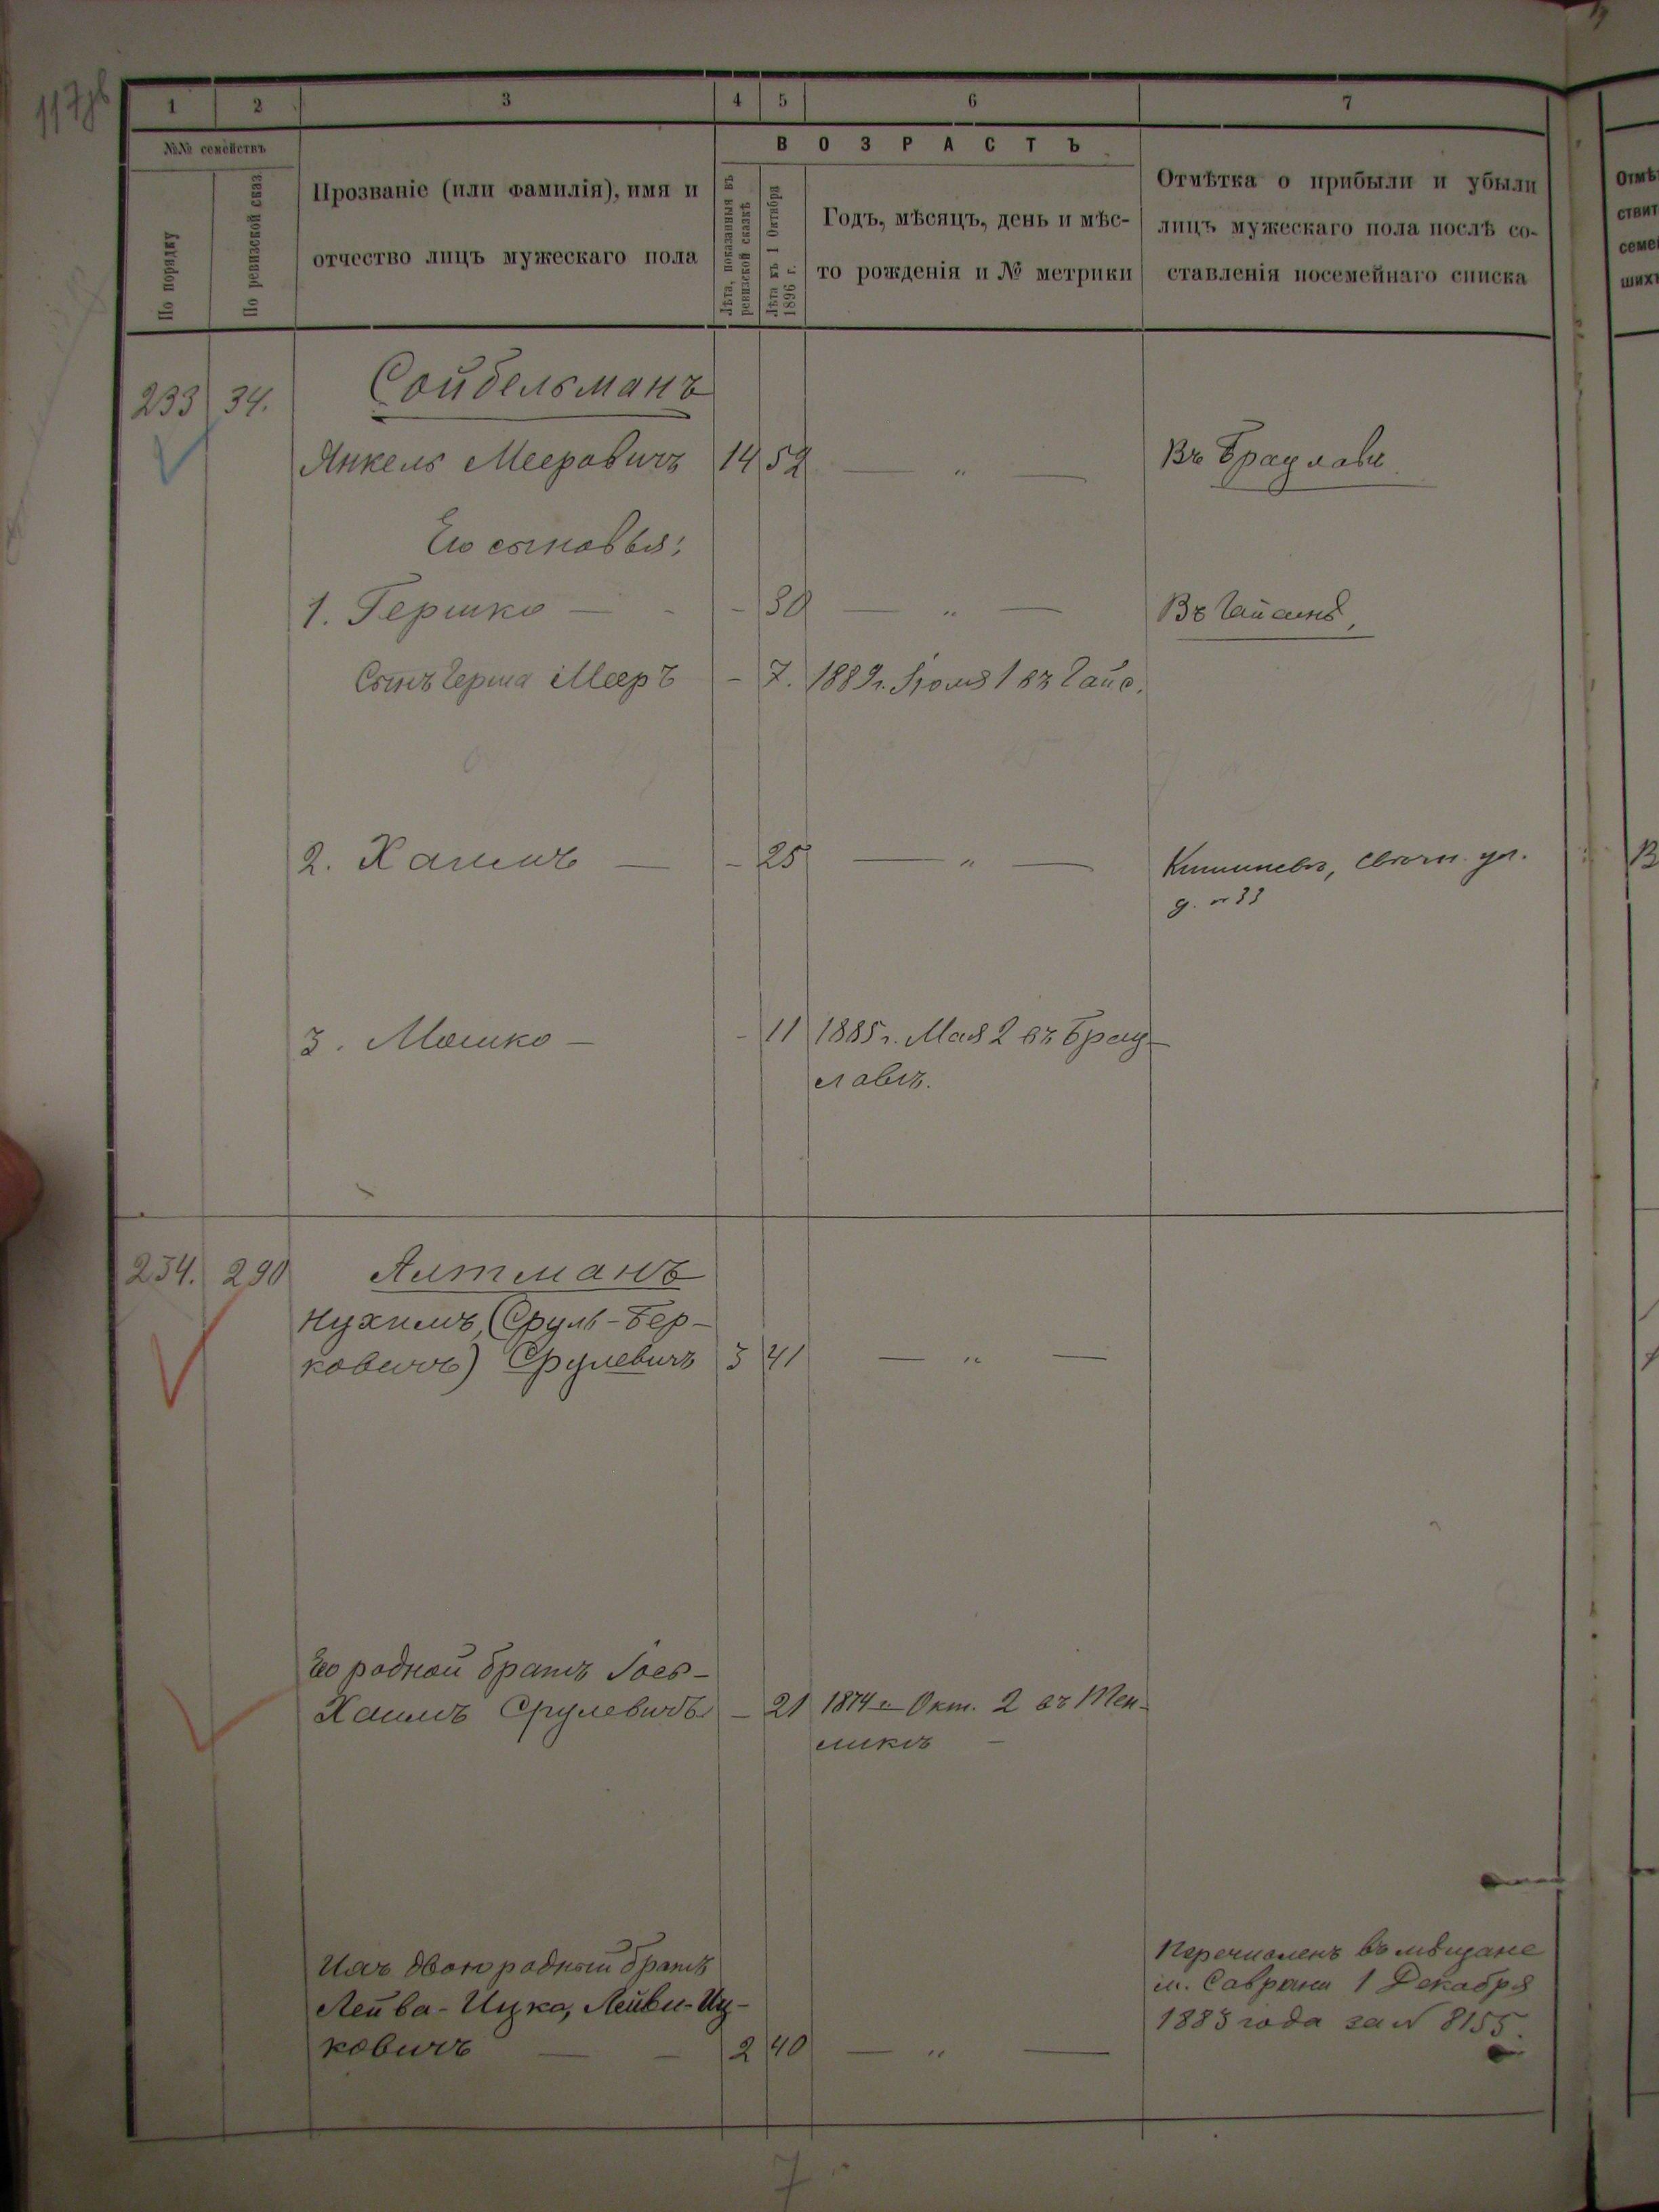 117об
1 2 3 4 5 6 7
№№ семействъ
По порядку
По ревизской сказ
Прозваніе (или фамилія), имя и
отчество лицъ мужескаго пола
ВОЗРАСТЪ
Лѣта, показанныя въ
ревизской сказкѣ
Лѣта къ 1 Октября
1896 г.
Годъ, мѣсяцъ, день и мѣс-
то рожденія и № метрики
Отмѣтка о прибыли и убыли
лицъ мужескаго пола послѣ со-
ставленія посемейнаго списка
233 34. Сойбельманъ
Янкель Мееровичъ 14 52 — " — Въ Брацлавѣ
Его сыновья:
1. Гершко — - - 30 — " — Въ Гайсинѣ,
Сынъ Герша Мееръ - 7. 1889 г. Іюля 1 въ Гайс.
2. Хаимъ — - 25 — " — Кишиневъ, ул.
д. № 33
3. Мошко — - 11 1885 г. Мая 2 въ Брац-
лавѣ.
234. 290 Алтманъ
Нухимъ, (Сруль-Бер-
ковичъ) Срулевичъ 3 41 — " —
Его родной братъ Іось-
Хаимъ Срулевичъ - 21 1874 г. Окт. 2 въ Теп-
ликѣ —
Ихъ двоюродный братъ
Лейба-Ицко, Лейби-Иц-
ковичъ — — 2 40 — " —
Перечисленъ въ мѣщане
м. Саврани 1 Декабря
1883 года за № 8155.
7
Отмѣ
ствит
семе
шихъ
В